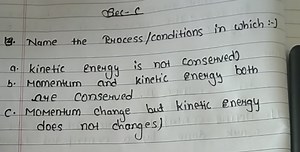 Sec - C
Name the Process/conditions in which :-)
a. kinetic energy is not conserved)
b. Momentum and kinetic energy both
are conserved
c. Momentum change but kinetic energy
does not changes)